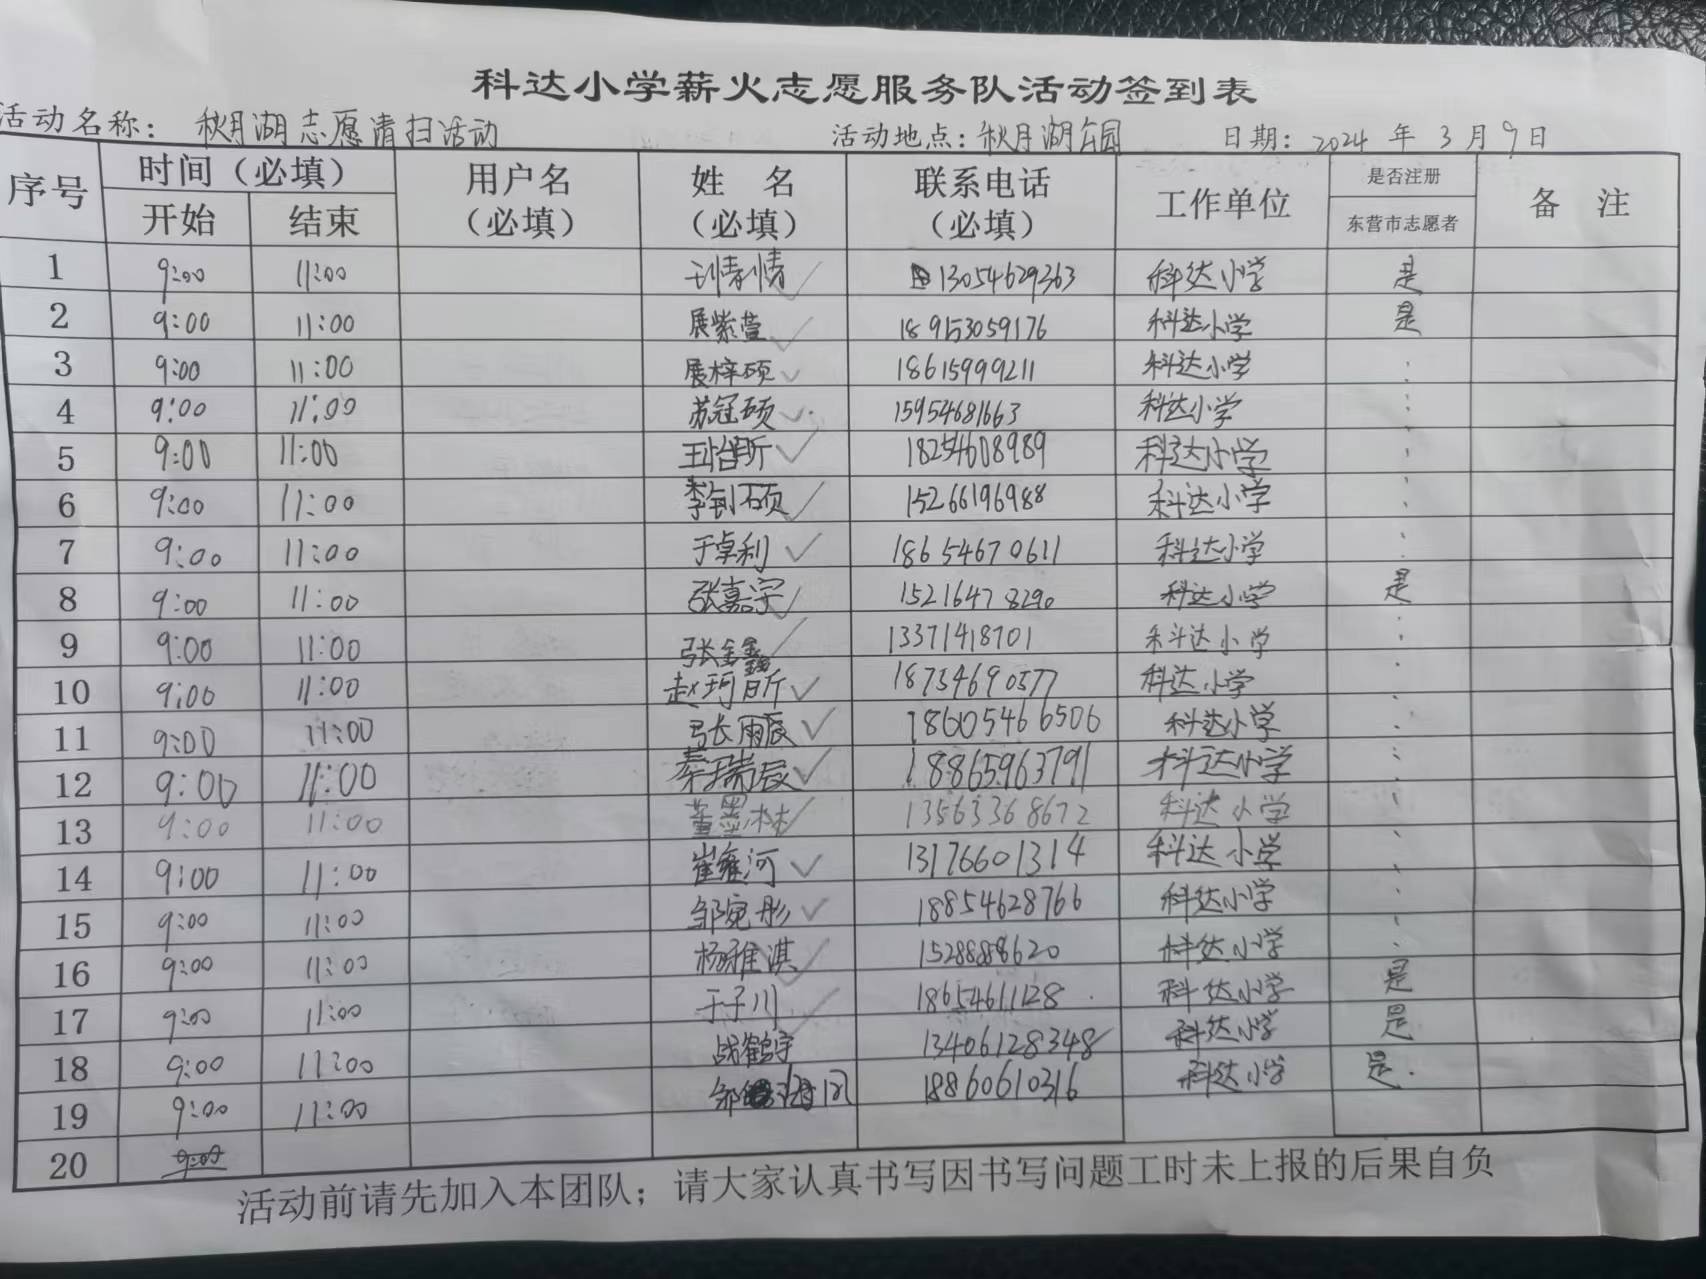 科达小学薪火志愿服务队活动签到表
活动名称：秋月湖志愿清扫活动 活动地点：秋月湖公园 日期：2024 年 3 月 9 日
序号 时间（必填） 用户名（必填） 姓 名（必填） 联系电话（必填） 工作单位 是否注册 备 注
开始 结束 东营市志愿者
1 9:00 11:00 13054629363 科达小学 是
2 9:00 11:00 展紫萱 18953059176 科达小学 是
3 9:00 11:00 展梓硕 18615999211 科达小学
4 9:00 11:00 苏冠硕 15954681663 科达小学
5 9:00 11:00 18254608989 科达小学
6 9:00 11:00 李钊硕 15266196988 科达小学
7 9:00 11:00 于卓利 18654670611 科达小学
8 9:00 11:00 张嘉宇 15216478290 科达小学 是
9 9:00 11:00 张鑫 13371418701 科达小学
10 9:00 11:00 赵珂昕 18754690577 科达小学
11 9:00 11:00 张雨辰 18605466506 科达小学
12 9:00 11:00 秦瑞辰 18865963791 科达小学
13 9:00 11:00 董墨林 13563368672 科达小学
14 9:00 11:00 崔雍河 13176601314 科达小学
15 9:00 11:00 邹宛彤 18854628766 科达小学
16 9:00 11:00 杨雅淇 1528888620 科达小学
17 9:00 11:00 于子川 18654611128 科达小学 是
18 9:00 11:00 战鹤宇 13406128348 科达小学 是
19 9:00 11:00 邹 18860610316 科达小学 是
20 9:00
活动前请先加入本团队；请大家认真书写因书写问题工时未上报的后果自负